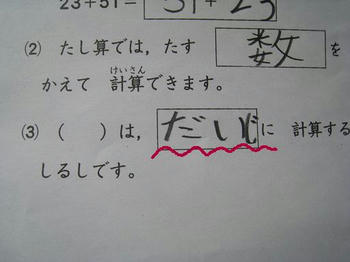 23+51= 51+23
(2) たし算では，たす 数を
かえて 計算できます。
けいさん
(3) ( )は， だいじに 計算する
しるしです。